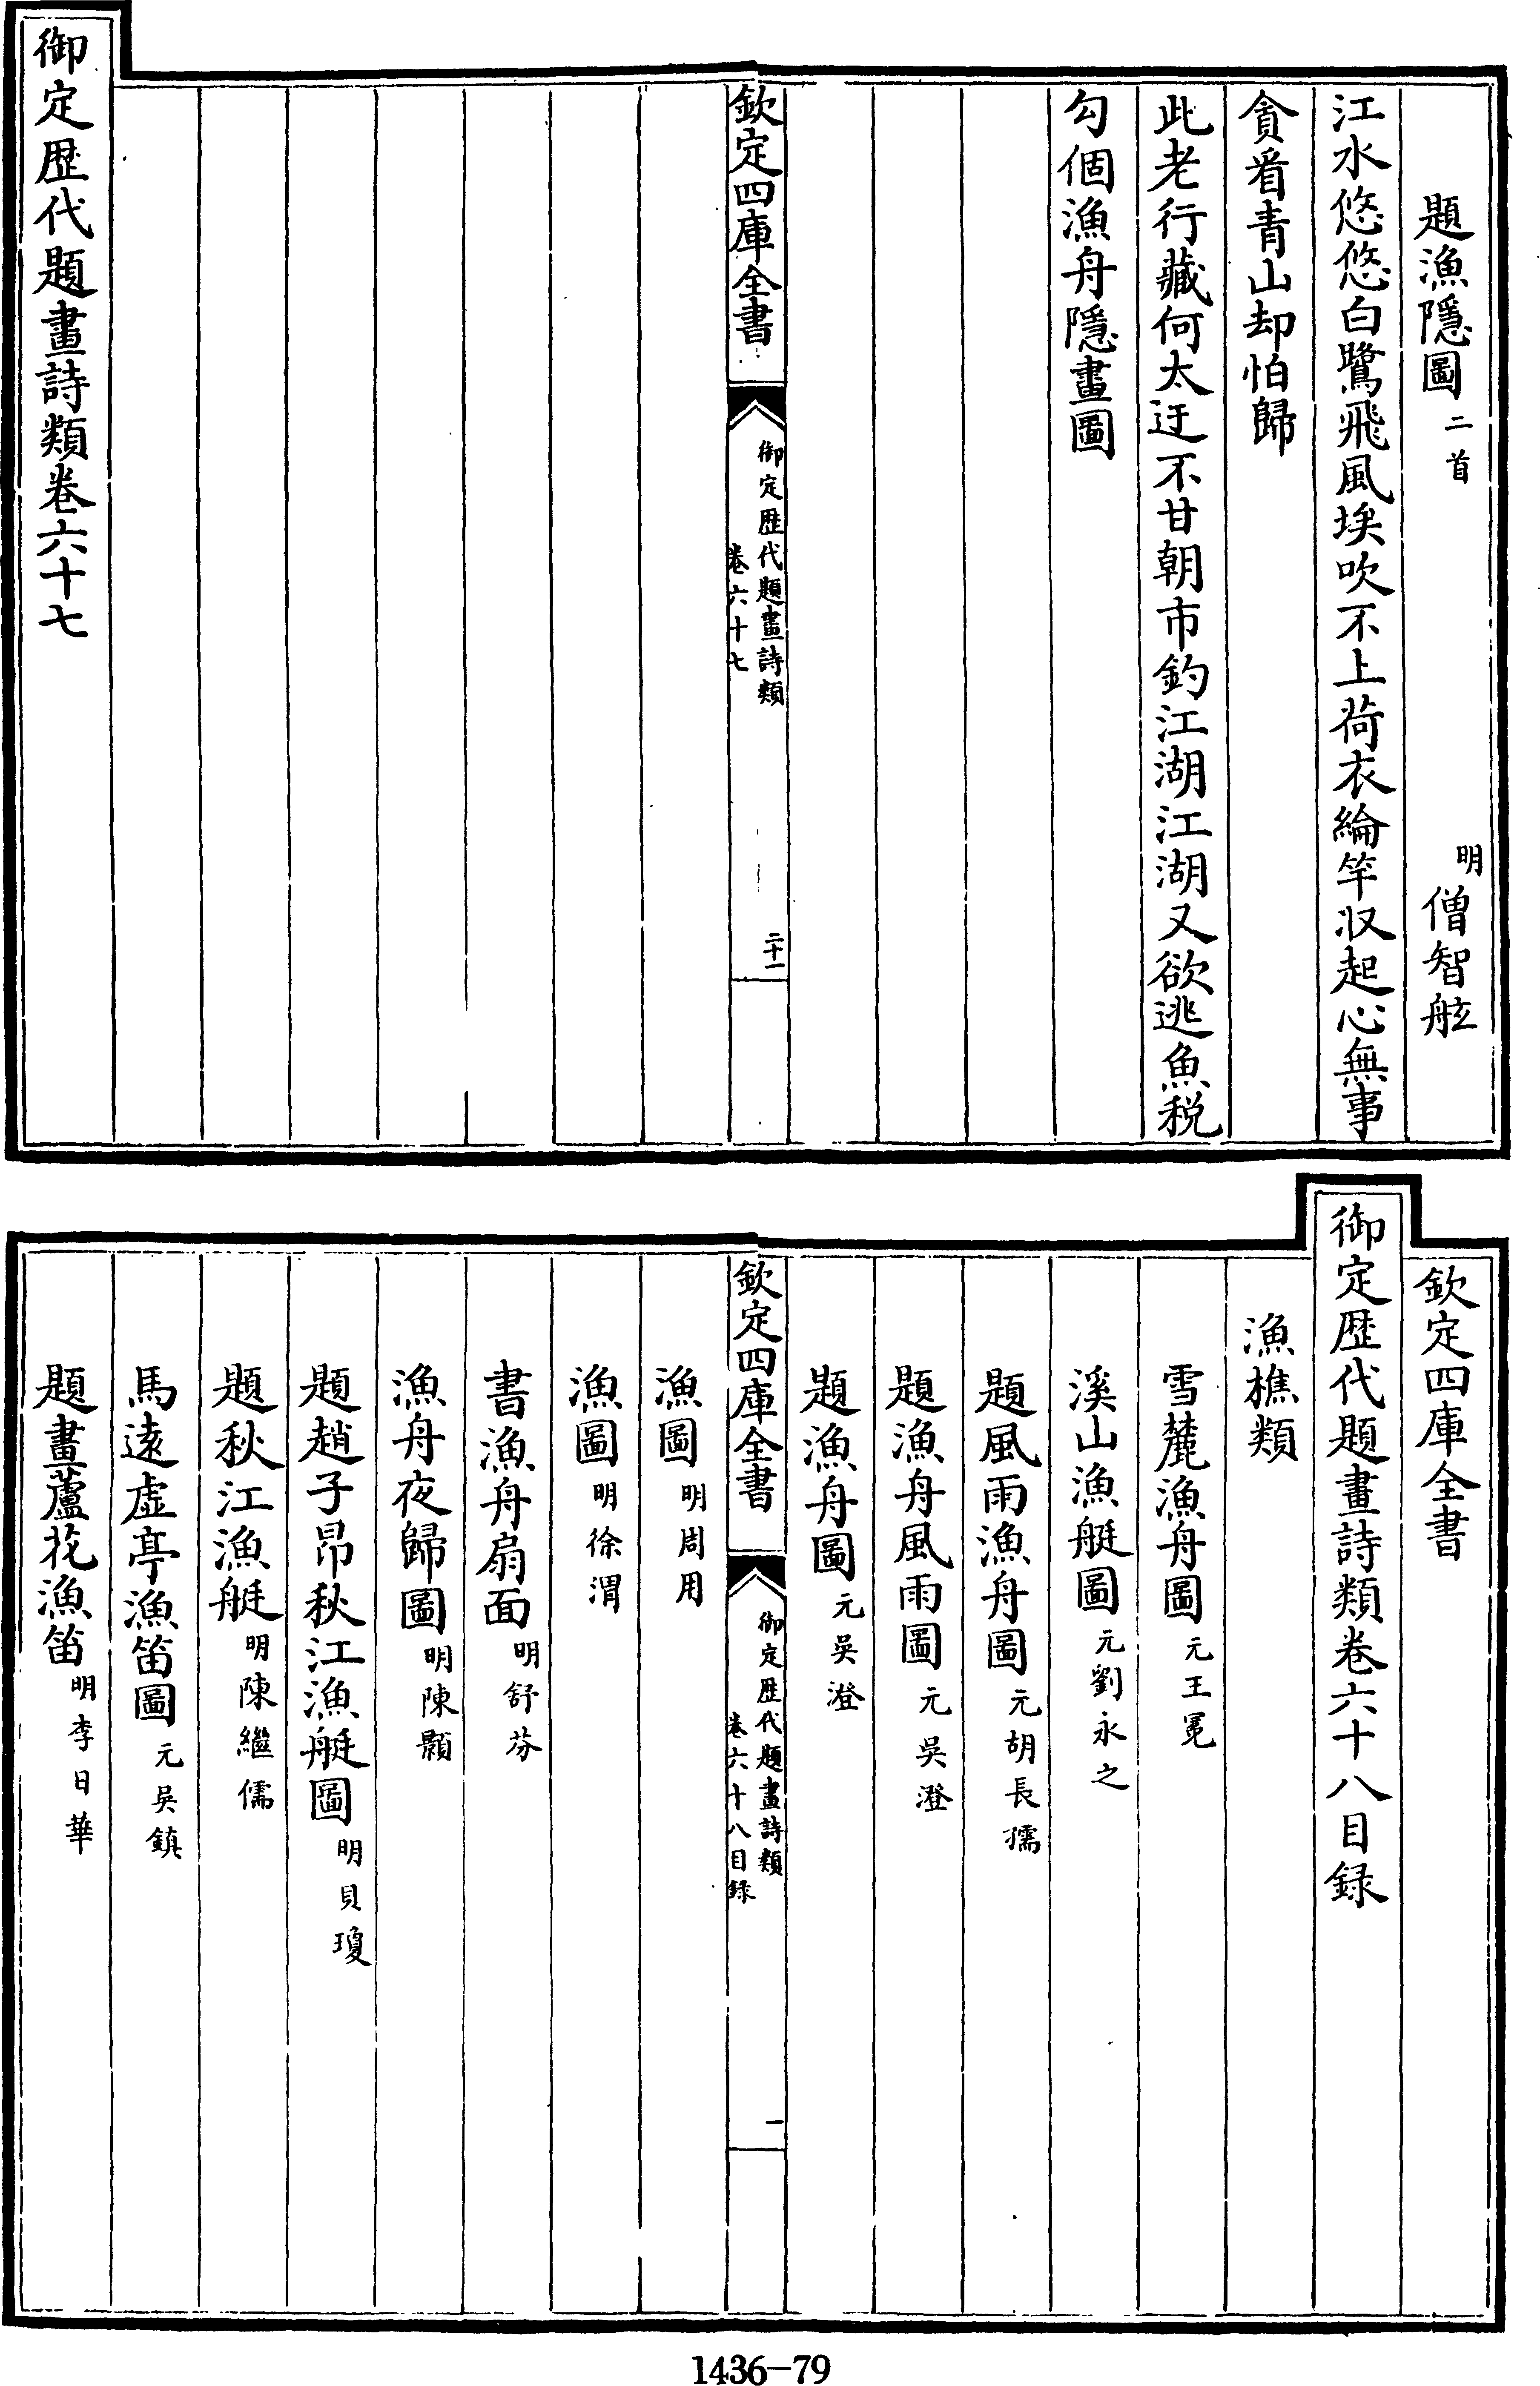 題漁隱圖二首　明僧智舷
江水悠悠白鷺飛風埃吹不上荷衣綸竿收起心無事
貪看青山却怕歸
此老行藏何太迂不甘朝市釣江湖江湖又欲逃魚稅
勾個漁舟隱畫圖
欽定四庫全書
御定歴代題畫詩類
卷六十七
二十一
御定歴代題畫詩類卷六十七
欽定四庫全書
御定歴代題畫詩類卷六十八目録
漁樵類
雪麓漁舟圖元王冕
溪山漁艇圖元劉永之
題風雨漁舟圖元胡長孺
題漁舟風雨圖元吳澄
題漁舟圖元吳澄
欽定四庫全書
御定歴代題畫詩類
卷六十八目録
一
漁圖明周用
漁圖明徐渭
書漁舟扇面明舒芬
漁舟夜歸圖明陳顥
題趙子昂秋江漁艇圖明貝瓊
題秋江漁艇明陳繼儒
馬遠虛亭漁笛圖元吳鎮
題畫蘆花漁笛明李日華
1436-79